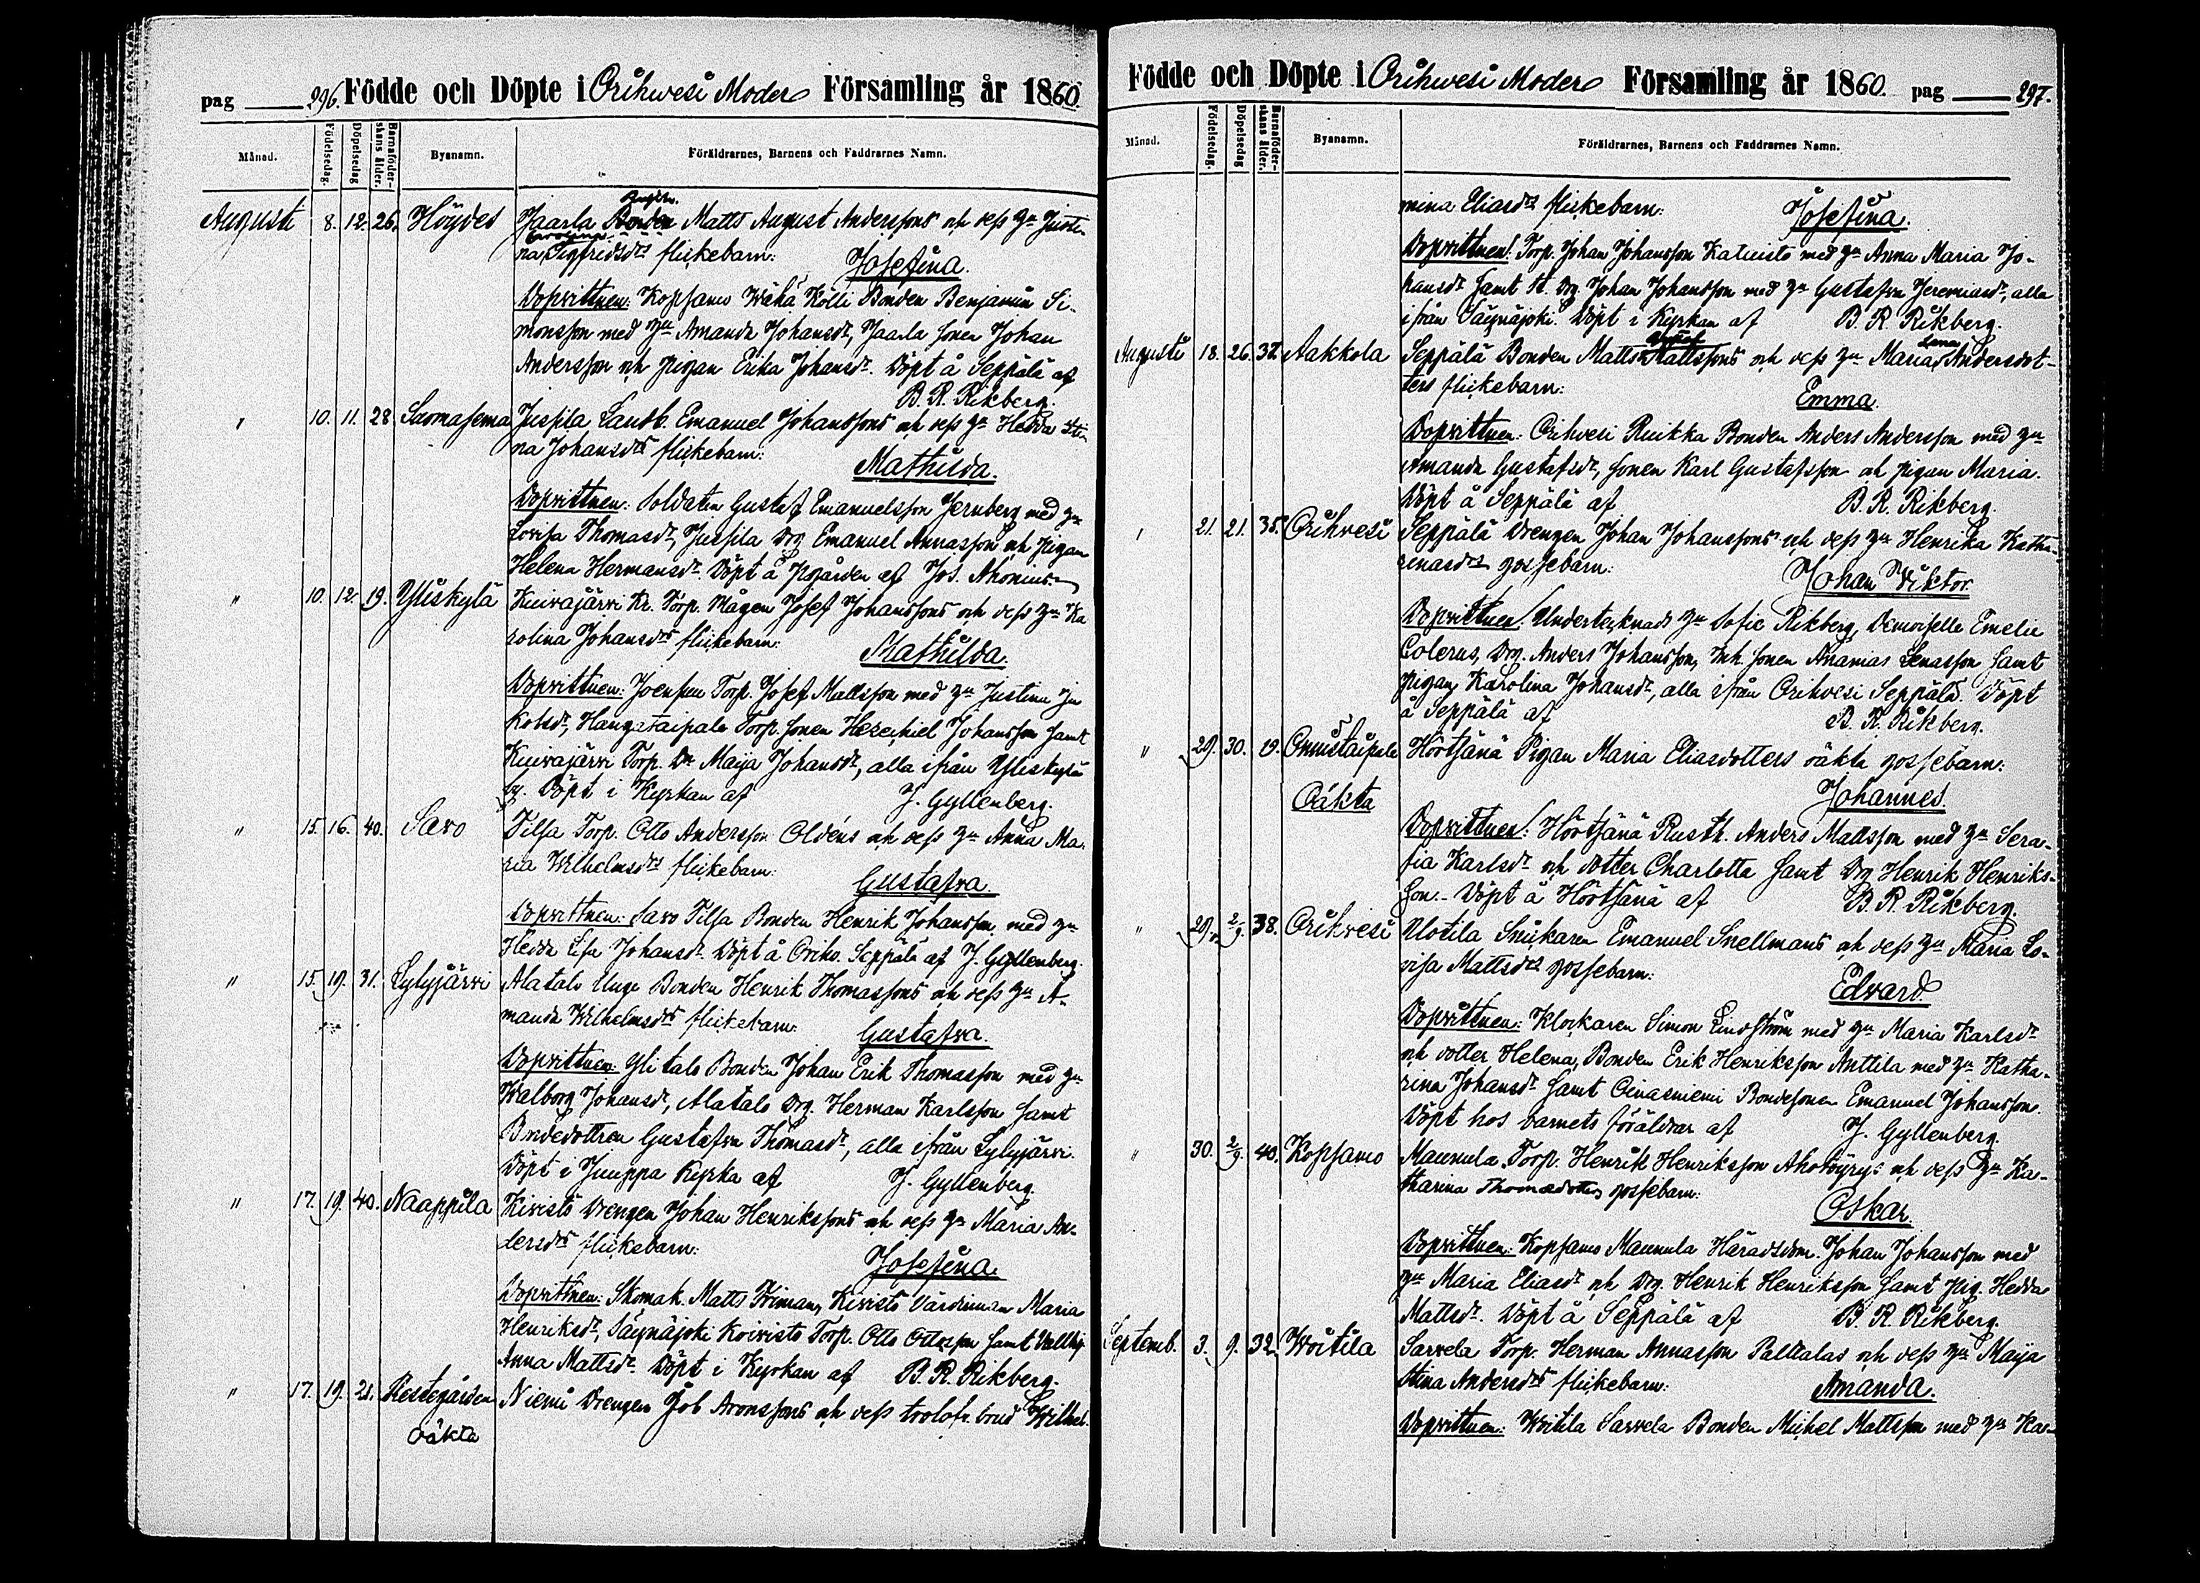 pag 296. Födde och Döpte i Orihwesi Moder Församling år 1860.
Månad. Födelsedag. Döpelsedag Barnaföderskans ålder. Byanamn. Föräldrarnes, Barnens och Faddrarnes Namn.
August 8. 12. 26. Höydes Jaarla Bonden Matts August Anderssons och dess hu Justi-
na Sigfridsdrs flickebarn: Josefina.
Dopvittnen: Kopsamo Wähä Kolli Bonden Benjamin Si-
monsson med hu Amanda Johansdr, Jaarla sonen Johan
Andersson och pigan Erika Johansdr. Döpt å Seppälä af
B. R. Rikberg.
" 10. 11. 28. Suomasema Jussila Landb. Emanuel Johanssons och dess hu Hedda Sti-
na Johansdrs flickebarn: Mathilda.
Dopvittnen: Soldaten Gustaf Emanuelsson Jernberg med hu
Lovisa Thomasdr, Jussila Drg Emanuel Annasson och pigan
Helena Hermansdr. Döpt å Pgården af Jos. Ahonius
" 10. 12. 19. Yliskylä Kuivajärvi Kr. Torp. Mågen Josef Johanssons och dess hu Ka
rolina Johansdrs flickebarn: Mathilda.
Dopvittnen: Joensuu Torp. Josef Mattsson med hu Justina Ja
kobsdr, Hangastaipale Torp. sonen Hezechiel Johansson samt
Kuivajärvi Torp. Dr Maija Johansdr, alla ifrån Yliskylä
by. Döpt i Kyrkan af J. Gyllenberg.
" 15. 16. 40. Savo Tilsa Torp. Otto Andersson Oldéns och dess hu Anna Ma-
ria Wilhelmsdrs flickebarn: Gustafva.
Dopvittnen: Savo Tilsa Bonden Henrik Johansson med hu
Hedda Lisa Johansdr. Döpt å Orihv. Seppälä af J. Gyllenberg.
" 15. 19. 31. Lylyjärvi Alatalo Unge Bonden Henrik Thomassons och dess hu A-
manda Wilhelmsdrs flickebarn: Gustafva.
Dopvittnen: Ylitalo Bonden Johan Erik Thomasson med hu
Walborg Johansdr, Alatalo Drg. Herman Karlsson samt
Bondedottren Gustafva Thomasdr, alla ifrån Lylyjärvi.
Döpt i Juuppa Kyrka af J. Gyllenberg.
" 17. 19. 40. Naappila Kivistö Drengen Johan Henrikssons och dess hu Maria An-
dersdrs flickebarn: Josefina.
Dopvittnen: Skomak. Matts Friman, Kivistö Värdinnan Maria
Henriksdr, Säynäjoki Koivisto Torp. Otto Ottosson samt
Anna Mattsdr. Döpt i Kyrkan af B. R. Rikberg.
" 17. 19. 21. Prestegården Niemi Drengen Job Aronssons och dess trolofv. brud Wilhel-
Oäkta
Födde och Döpte i Orihwesi Moder Församling år 1860. pag 297.
Månad. Födelsedag. Döpelsedag Barnaföderskans ålder. Byanamn. Föräldrarnes, Barnens och Faddrarnes Namn.
mina Eliasdrs flickebarn: Josefina.
Dopvittnen: Torp. Johan Johansson Katinisto med hu Anna Maria Jo-
hansdr samt St. Drg. Johan Johansson med hu Gustafva Jeremiasdr, alla
ifrån Säynäjoki. Döpt i Kyrkan af B. R. Rikberg.
Augusti 18. 26. 37. Aakkola Seppälä Bonden Matts Mattssons och dess hu Maria Lena Andersdot-
ters flickebarn: Emma.
Dopvittnen: Orihvesi Ruikka Bonden Anders Andersson med hu
Amanda Gustafsdr, sonen Karl Gustafsson och pigan Maria.
Döpt å Seppälä af B. R. Rikberg.
" 21. 21. 35. Orihvesi Seppälä Drengen Johan Johanssons och dess hu Henrika Katha-
rinasdrs gossebarn: Johan Viktor.
Dopvittnen: Undertecknads hu Sofie Rikberg, Demoiselle Emelie
Colerus, Drg. Anders Johansson, Inh. sonen Ananias Lenasson samt
pigan Karolina Johansdr, alla ifrån Orihvesi Seppälä. Döpt
å Seppälä af B. R. Rikberg.
" 29. 30. 19. Onnistaipale Hörtsänä Pigan Maria Eliasdotters oäkta gossebarn:
Oäkta Johannes.
Dopvittnen: Hörtsänä Rusth. Anders Mattsson med hu Sera-
fia Karlsdr och dotter Charlotta samt Drg Henrik Henriks-
son. Döpt å Hörtsänä af B. R. Rikberg.
" 29. 2/9. 38. Orihvesi Uotila Snickaren Emanuel Snellmans och dess hu Maria Lo-
visa Mattsdrs gossebarn: Edvard
Dopvittnen: Klockaren Simon Lindström med hu Maria Karlsdr
och dotter Helena, Bonden Erik Henriksson Anttila med hu Katha-
rina Johansdr samt Oinasniemi Bondesonen Emanuel Johansson.
Döpt hos barnets föräldrar af J. Gyllenberg.
" 30. 2/9. 40. Kopsamo Maunula Torp. Henrik Henriksson Ahotöyrys och dess hu Ka-
tharina Thomædotters gossebarn: Oskar.
Dopvittnen: Kopsamo Maunula Häradsdom. Johan Johansson med
hu Maria Eliasdr och Drg. Henrik Henriksson samt pig. Hedda
Mattsdr. Döpt å Seppälä af B. R. Rikberg.
Septemb. 3. 9. 32. Woitila Sarvela Torp. Herman Annasson Palkalas och dess hu Maija
Stina Andersdrs flickebarn: Amanda.
Dopvittnen: Woitila Sarvela Bonden Michel Mattsson med hu Ka-